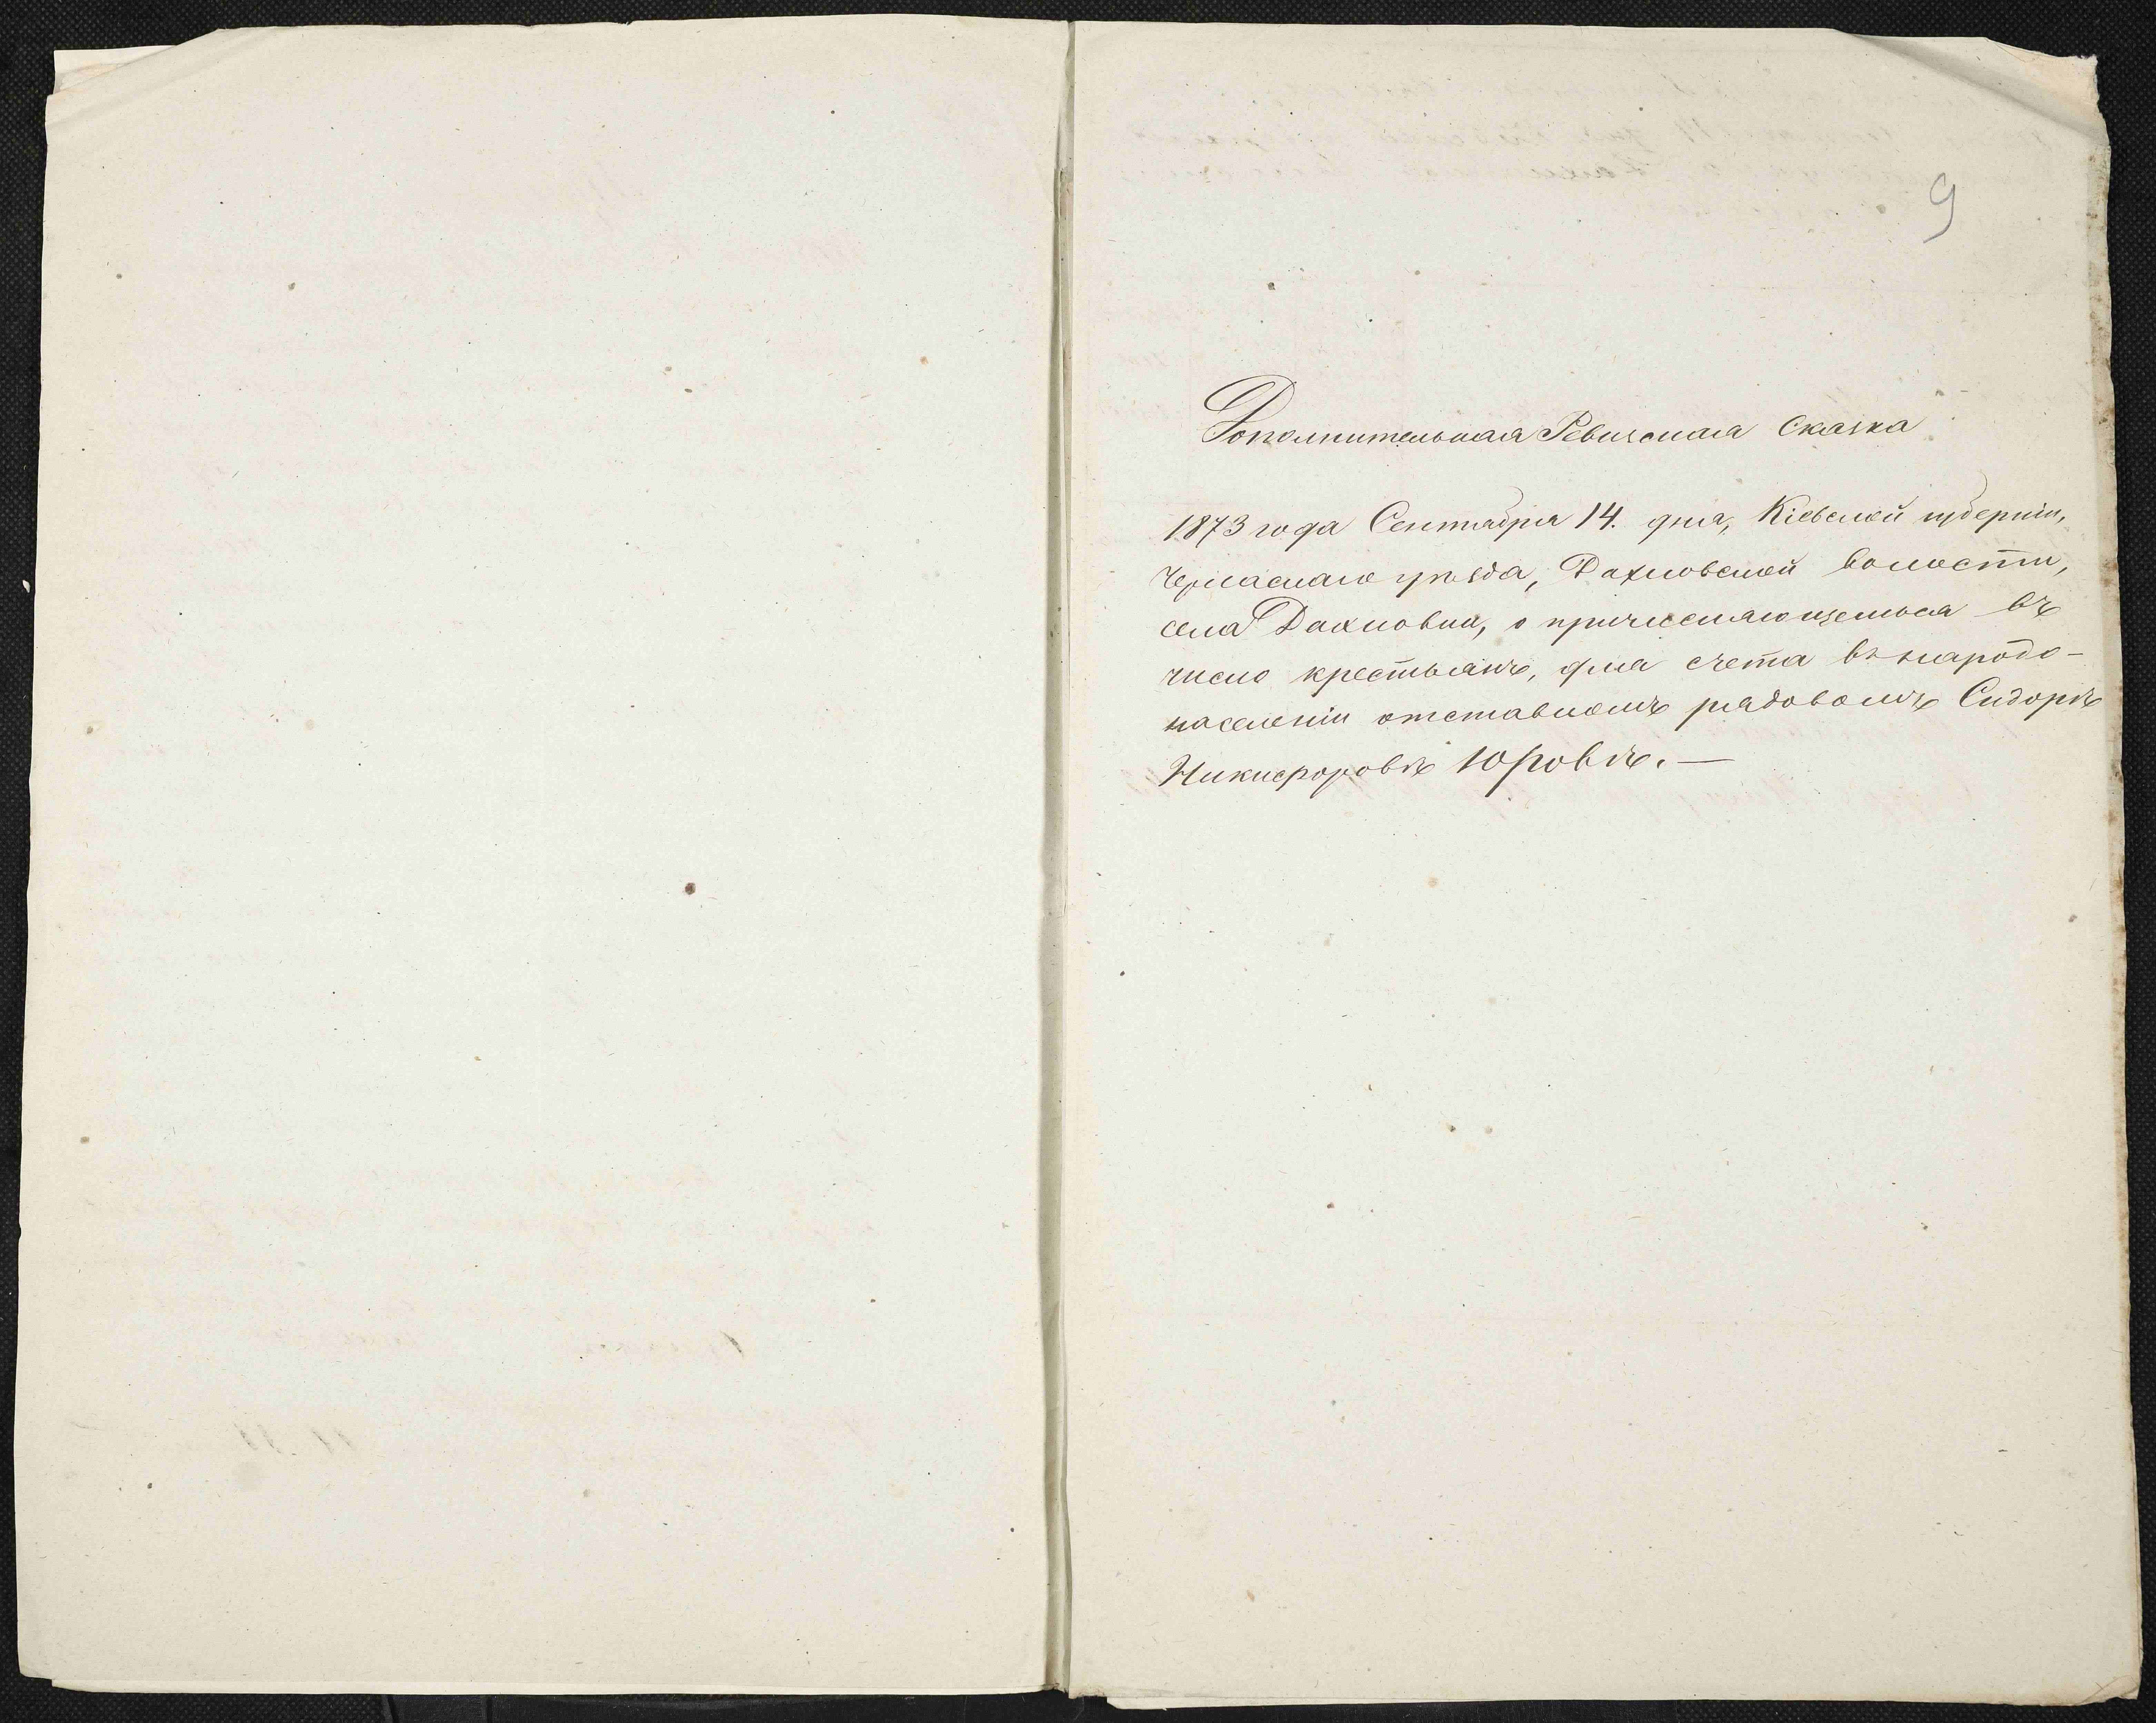 9
Дополнительная Ревизская Сказка
1873 года Сентября 14. дня, Кіевской губерніи,
Черкаскаго уѣзда, Дахновской волости,
села Дахновки, о причисляющемься въ
число крестьянъ, для счета въ народо-
населеніи отставномъ рядовомъ Сидорѣ
Никифоровѣ Юровѣ. —